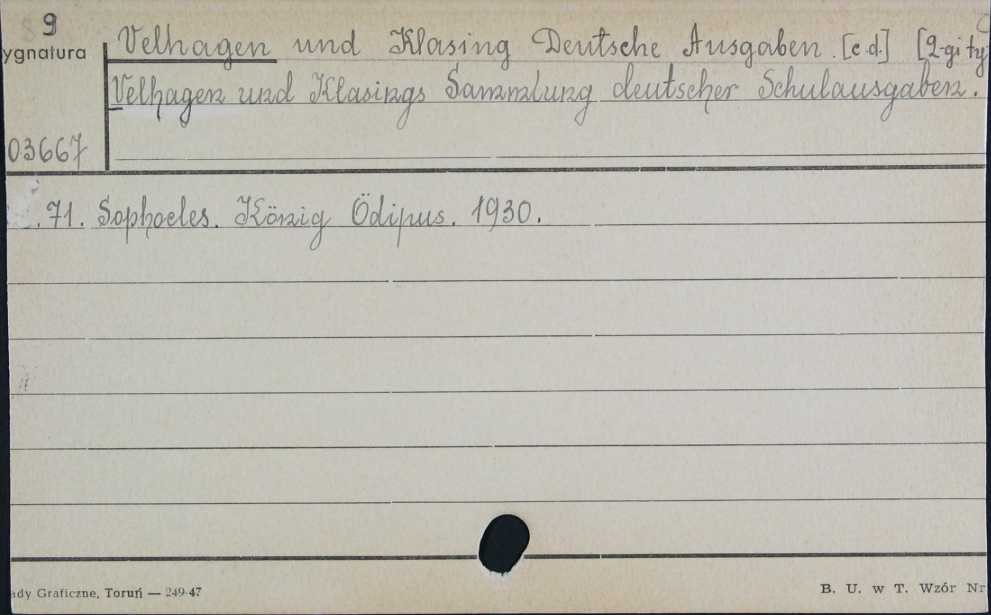 9
ygnatura
Velhagen und Klasing Deutsche Ausgaben. [c.d.] [2-gi ty
Velhagen und Klasings Sammlung deutscher Schulausgaben.
03667
.71. Sophocles. König Ödipus. 1930.
ady Graficzne, Toruń — 249-47
B. U. w T. Wzór Nr